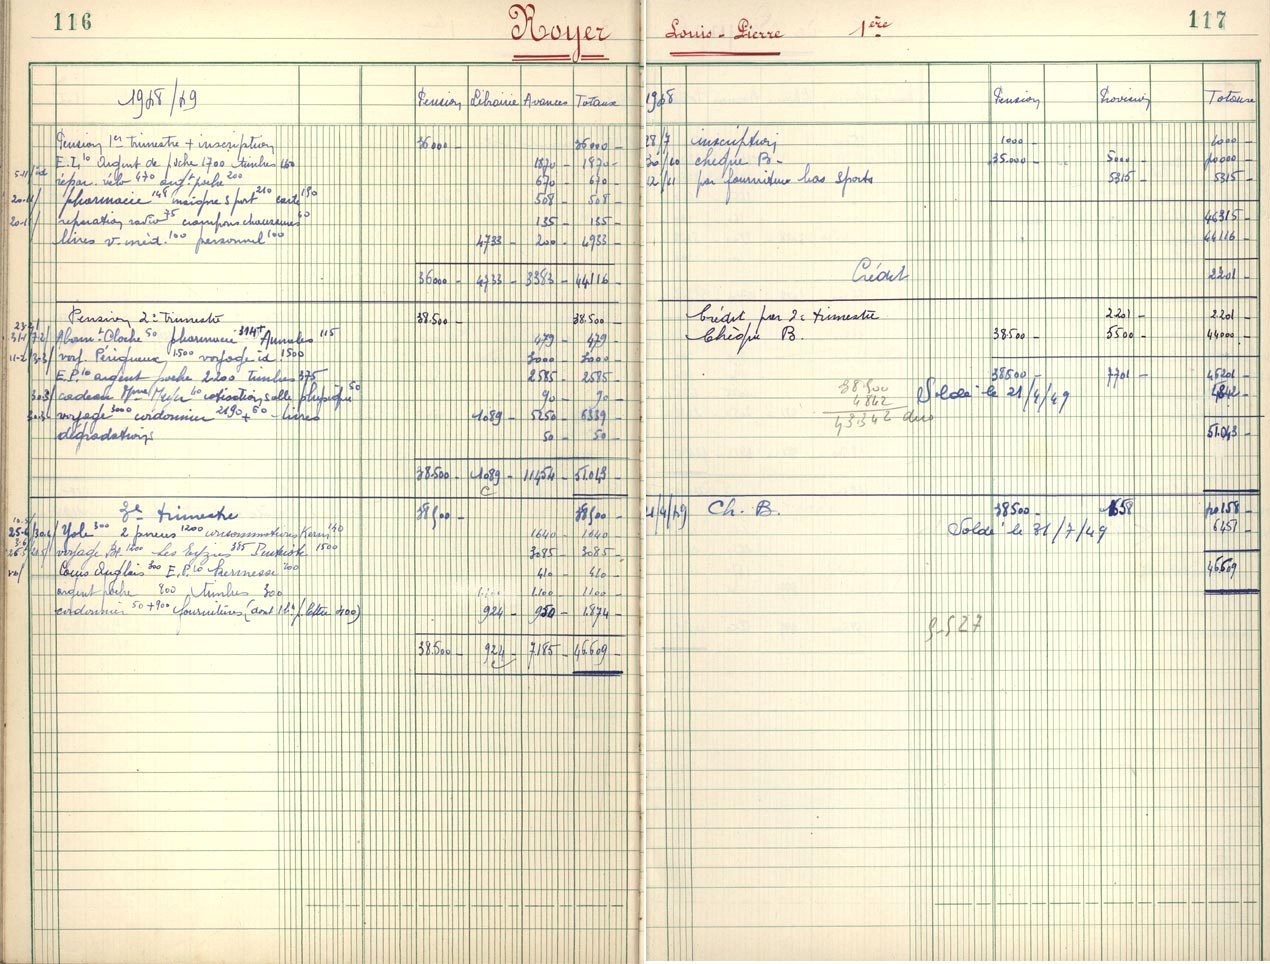 116
Noyer
1948/49
Pension Librairie Avances Totaux
Pension 1er trimestre + inscription 36000 - 36000 -
E.P. argent de poche 1700 timbres 1870 - 1870 -
5-11/ répar. vélo 470 argt poche 200 670 - 670 -
pharmacie insigne sport 210 carte 508 - 508 -
20-1/ réparation radio 75 crampons chaussures 60 135 - 135 -
livres v. méd. 100 personnel 100 4733 - 200 - 4933 -
36000 - 4733 - 3383 - 44116 -
Pension 2e trimestre 38.500 - 38.500 -
Abont Cloche 50 pharmacie 314 Annales 115 479 - 479 -
voy. Périgueux 1500 voyage id 1500 3000 - 3000 -
E.P. argent poche 2200 timbres 375 2585 - 2585 -
cadeau cotisation salle physique 50 90 - 90 -
voyage 3000 cordonnier 2190 + 60 - livres 1089 - 5250 - 6339 -
dégradations 50 - 50 -
38.500 - 1089 - 11454 - 51.043 -
3e trimestre 38500 - 38500 -
Yole 300 2 pneus 1200 1640 - 1640 -
voyage Les Eyzies 385 Pentecôte 1500 3085 - 3085 -
Cours Anglais 300 E.P. Kermesse 410 - 410 -
argent poche 800 timbres 300 1100 - 1100 -
cordonnier 50 + 900 fournitures 924 - 950 - 1874 -
38.500 - 924 - 7185 - 46.609 -
Louis-Pierre 1ère
117
1948 Pension Provision Totaux
28/7 inscription 1000 - 1000 -
30/10 chèque B. 35.000 - 5000 - 40000 -
12/11 par fourniture bas sports 5315 - 5315 -
46315 -
44116 -
Crédit 2201 -
Crédit par 2e trimestre 2201 - 2201 -
Chèque B. 38500 - 5500 - 44000 -
38500 - 7701 - 45201 -
Soldé le 21/4/49 4842 -
38.500
4842
43342 dus
51.043 -
21/4/49 Ch. B. 38500 - 1658 - 40158 -
Soldé le 31/7/49 6451 -
46609